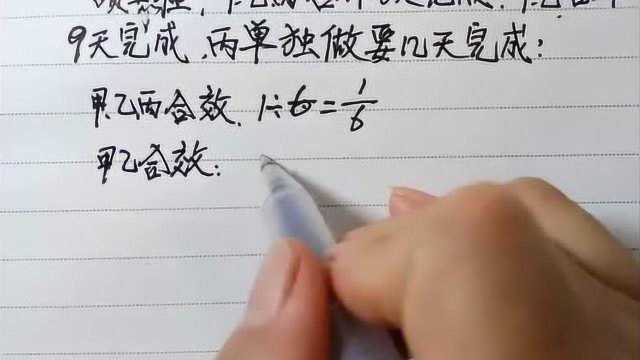 9天完成,丙单独做要几天完成:
甲乙丙合效. 1÷6=1/6
甲乙合效: